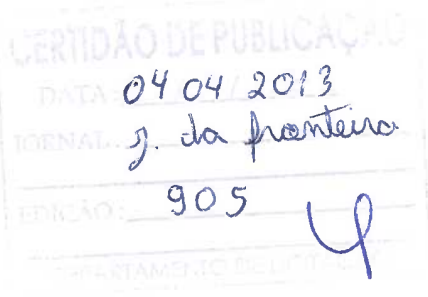 CERTIDÃO DE PUBLICAÇÃO
DATA 04 04 2013
JORNAL J. da fronteira
EDIÇÃO: 905
DEPARTAMENTO DE LICITAÇÃO